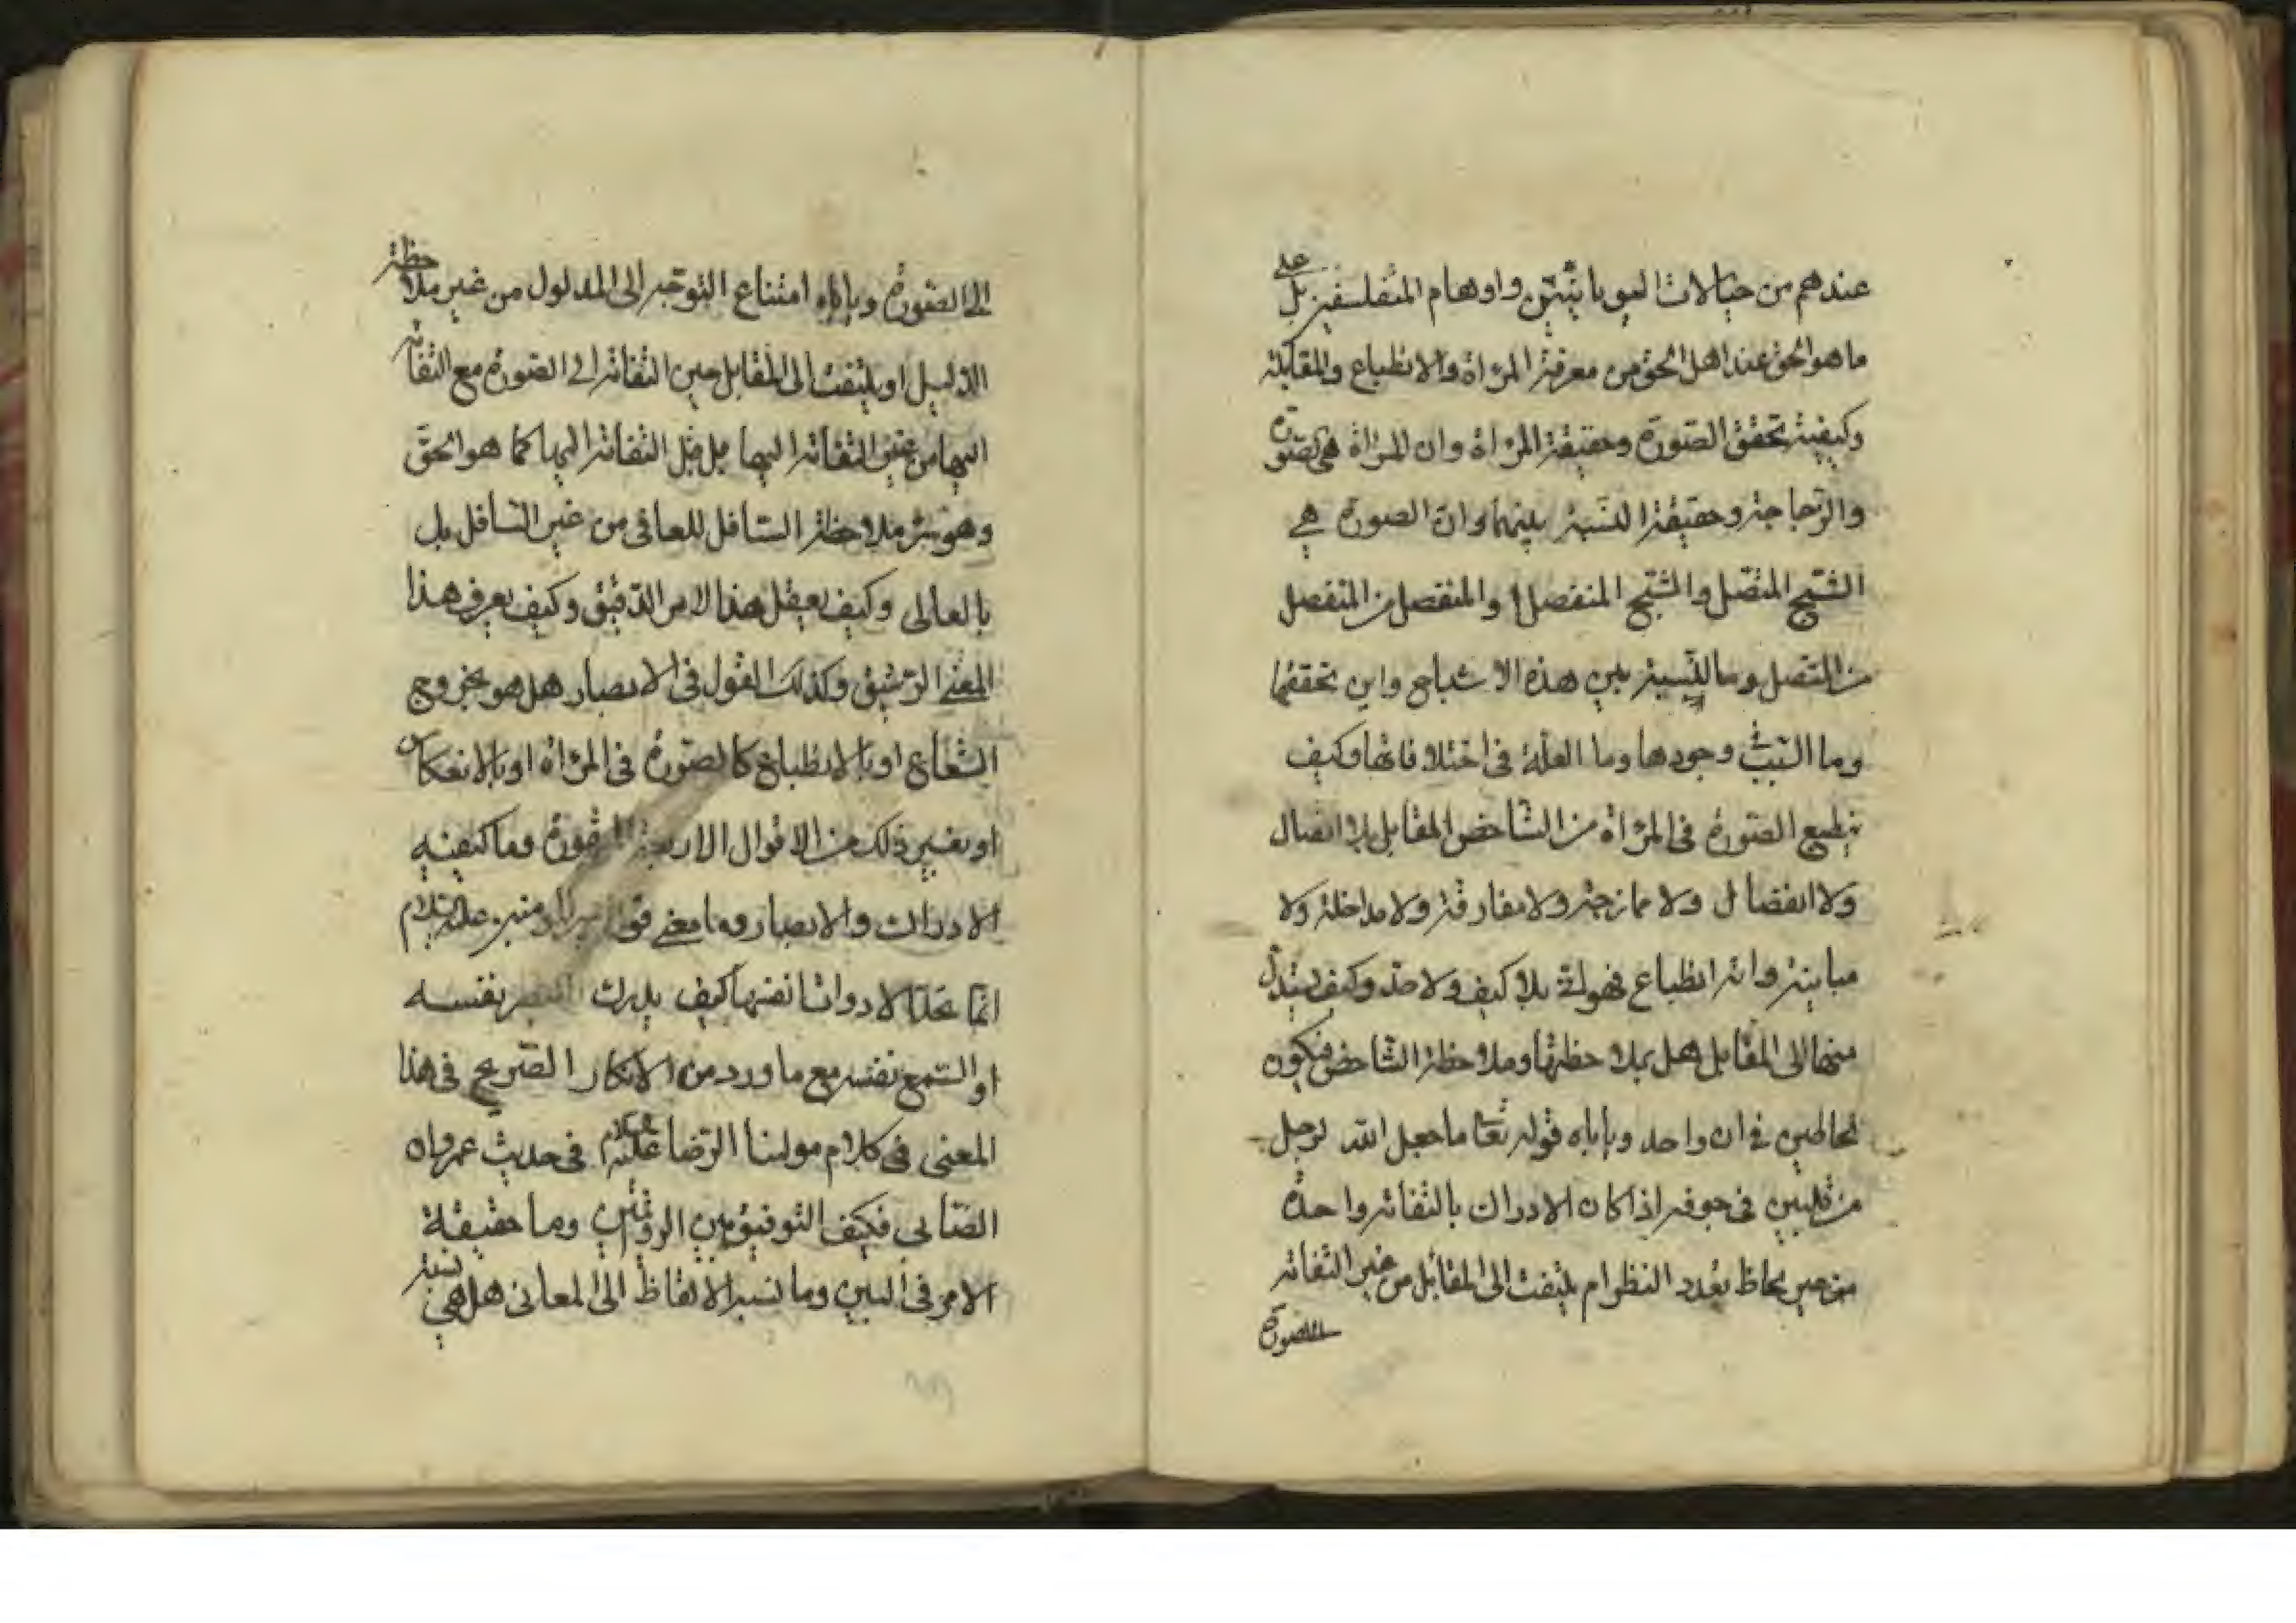 عندهم من خيالات واوهام المتفلسفين بل على
ما هو الحق عند اهل الحق من معرفة المرآة والانطباع والمقابلة
وكيفية تحقق الصورة وحقيقة المرآة وان المرآة هى الصورة
والزجاجة وحقيقة النسبة بينهما وان الصورة هي
الشبح المتصل والشبح المنفصل والمنفصل من المنفصل
من المتصل وما النسبة بين هذه الاشباح واين تحققها
وما السبب وجودها وما العلة فى اختلافاتها وكيف
تنطبع الصورة فى المرآة من الشاخص المقابل بلا اتصال
ولا انفصال ولا ممازجة ولا مفارقة ولا مداخلة ولا
مباينة وانه انطباع بلا كيف ولا حد وكيف يستدل
منها الى المقابل هل بملاحظتها وملاحظة الشاخص فيكون
لحاظين في ان واحد وياباه قوله تعا ما جعل الله لرجل
من قلبين فى جوفه اذا كان الادراك بالتفاته واحدة
من حين لحاظ تعدد النظر ام يلتفت الى المقابل من غير التفاته
الى الصورة
الى الصورة وياباه امتناع التوجه الى المدلول من غير ملاحظة
الدليل او يلتفت الى المقابل حين التفاته الى الصورة مع التفاته
اليها من غير التفاته اليها بل قبل التفاته اليها كما هو الحق
وهو سر ملاحظة السافل للعالى من غير السافل بل
بالعالى وكيف يعقل هذا الامر الدقيق وكيف يعرف هذا
المعنى الرشيق وكذلك القول فى الابصار هل هو بخروج
الشعاع او بالانطباع كالصورة فى المرآة او بالانعكاس
او بغير ذلك من الاقوال الاربعة وما كيفية
الادراك والابصار وما معنى قول امير المؤمنين عليه السلام
انما تحد الادوات انفسها كيف يدرك البصر نفسه
او السمع نفسه مع ما ورد من الانكار الصريح فى هذا
المعنى فى كلام مولينا الرضا عليه السلام فى حديث عمران
الصابى فكيف التوفيق بين الروايتين وما حقيقة
الامر فى البين وما نسبة الالفاظ الى المعانى هل هي نسبة